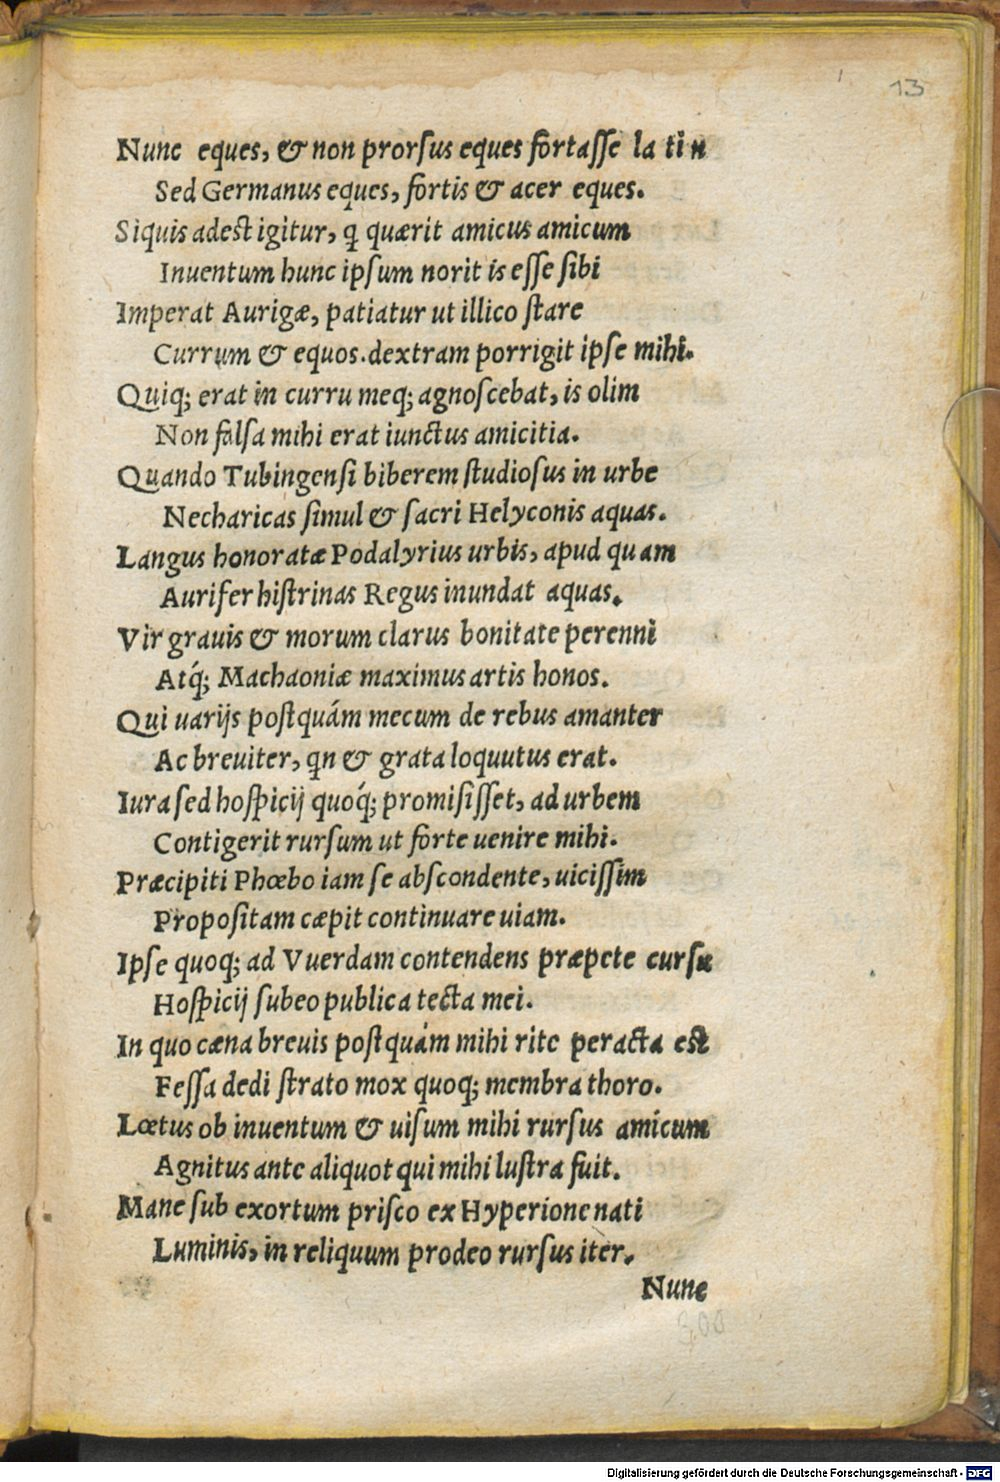 13
Nunc eques, & non prorsus eques fortasse la tin
Sed Germanus eques, fortis & acer eques.
Siquis adest igitur, q quærit amicus amicum
Inuentum hunc ipsum norit is esse sibi
Imperat Aurigæ, patiatur ut illico stare
Currum & equos. dextram porrigit ipse mihi.
Quiq; erat in curru meq; agnoscebat, is olim
Non falsa mihi erat iunctus amicitia.
Quando Tubingensi biberem studiosus in urbe
Necharicas simul & sacri Helyconis aquas.
Langus honoratæ Podalyrius urbis, apud quam
Aurifer histrinas Regus inundat aquas.
Vir grauis & morum clarus bonitate perenni
Atq́; Machaoniæ maximus artis honos.
Qui uarijs postquám mecum de rebus amanter
Ac breuiter, qn & grata loquutus erat.
Iura sed hospicij quoq́; promisisset, ad urbem
Contigerit rursum ut forte uenire mihi.
Præcipiti Phœbo iam se abscondente, uicissim
Propositam cæpit continuare uiam.
Ipse quoq; ad Vuerdam contendens præpete cursu
Hospicij subeo publica tecta mei.
In quo cæna breuis postquám mihi rite peracta est
Fessa dedi strato mox quoq; membra thoro.
Lœtus ob inuentum & uisum mihi rursus amicum
Agnitus ante aliquot qui mihi lustra fuit.
Mane sub exortum prisco ex Hyperione nati
Luminis, in reliquum prodeo rursus iter.
Nunc
300
Digitalisierung gefördert durch die Deutsche Forschungsgemeinschaft - DFG